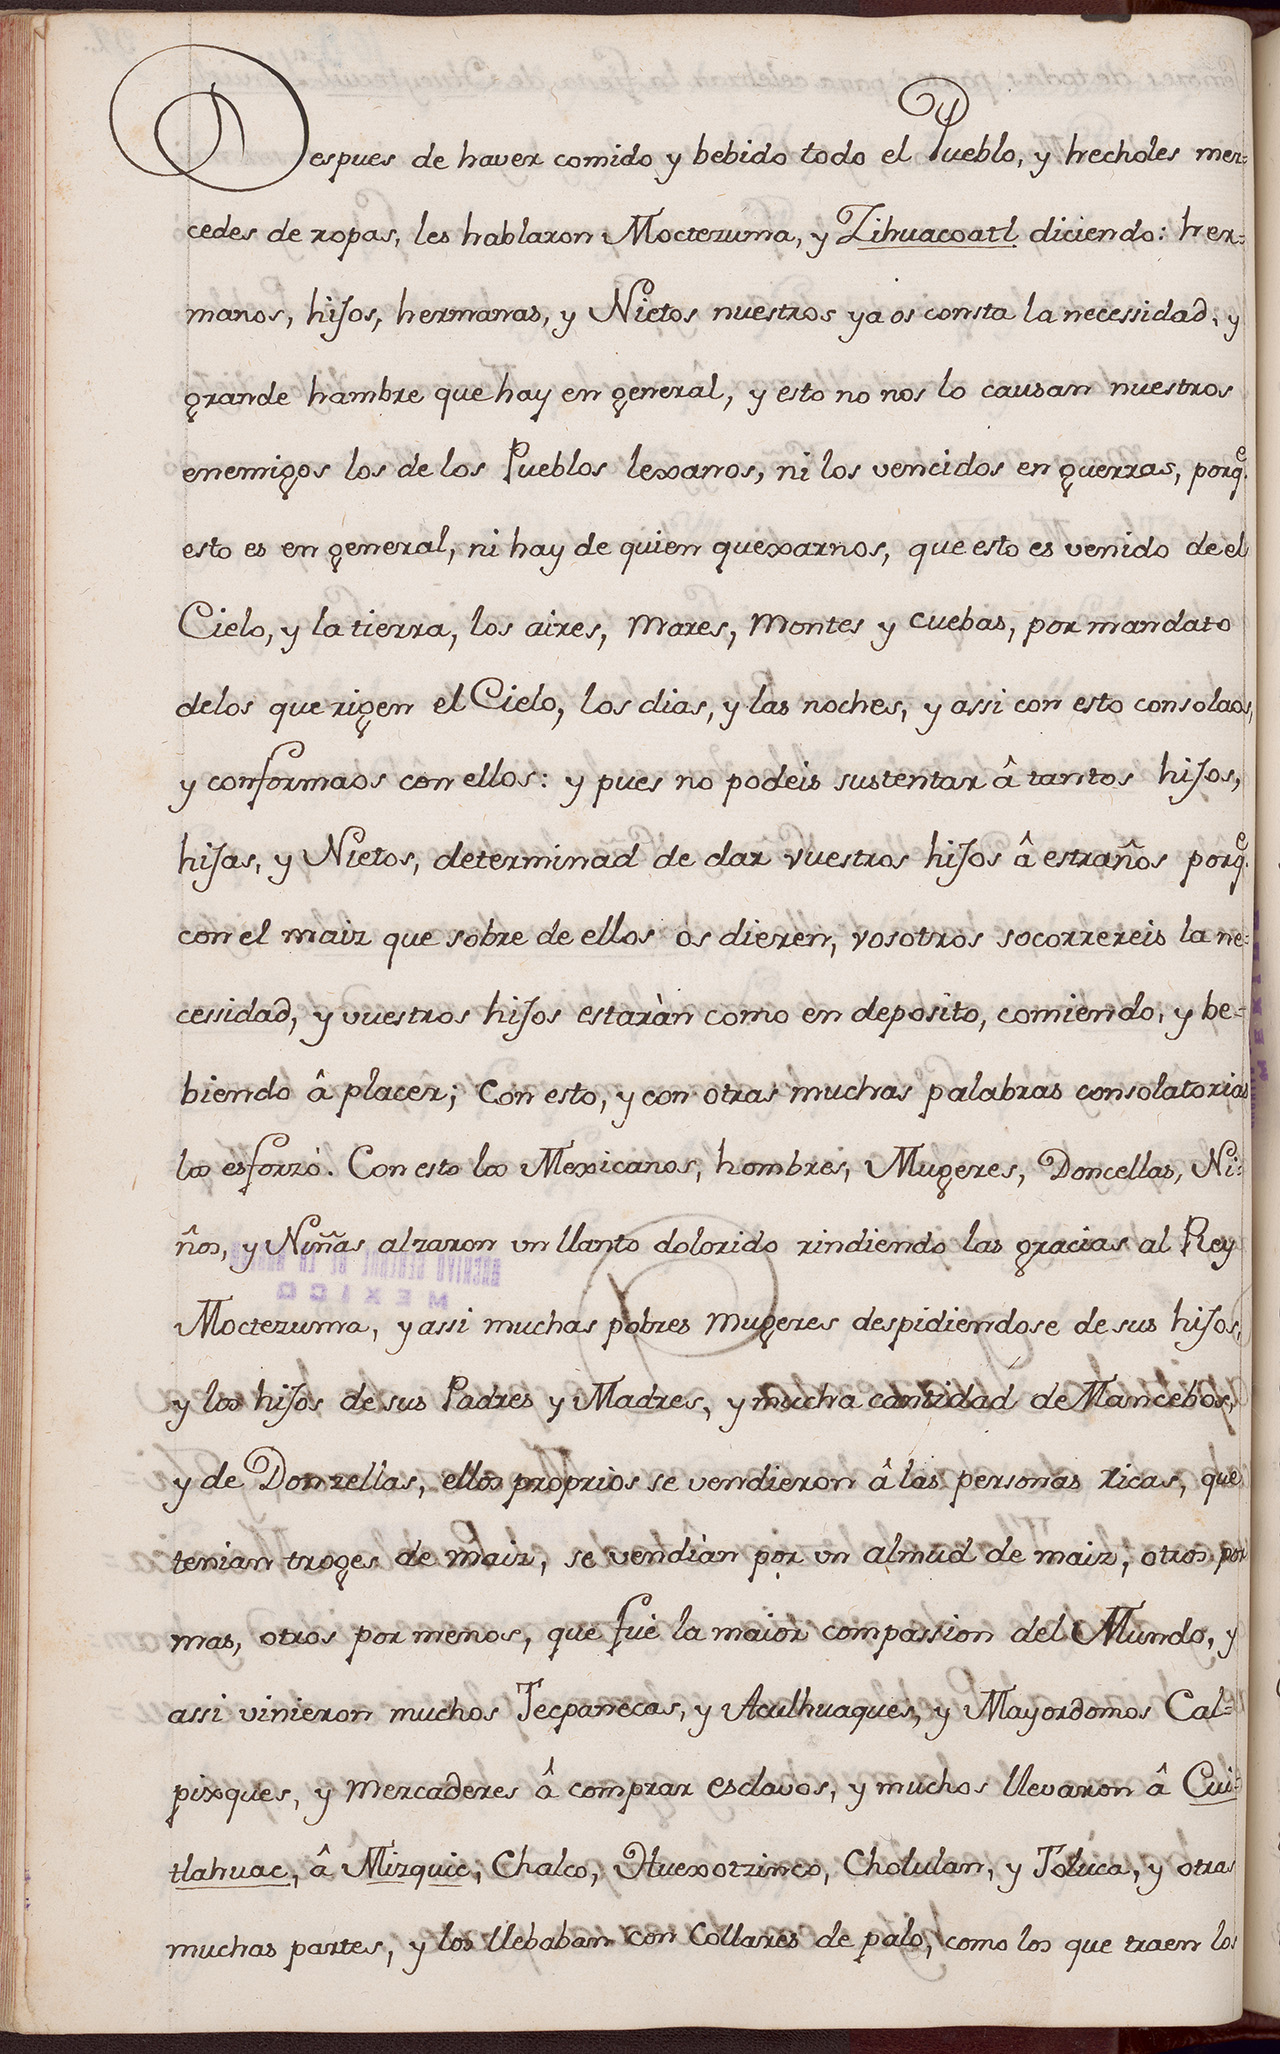 Despues de haver comido y bebido todo el Pueblo, y hecholes mer=
cedes de ropas, les hablaron Moctezuma, y Zihuacoatl diciendo: her=
manos, hijos, hermanas, y Nietos nuestros ya os consta la necessidad, y
grande hambre que hay en general, y esto no nos lo causan nuestros
enemigos los de los Pueblos lexanos, ni los vencidos en guerras, porq.e
esto es en general, ni hay de quien quexarnos, que esto es venido de el
Cielo, y la tierra, los aires, Mares, Montes y cuebas, por mandato
delos que rigen el Cielo, los dias, y las noches, y assi con esto consolaos,
y conformaos con ellos: y pues no podeis sustentar â tantos hijos,
hijas, y Nietos, determinad de dar vuestros hijos â estraños porq.e
con el maiz que sobre de ellos os dieren, vosotros socorrereis la ne=
cessidad, y vuestros hijos estaràn como en deposito, comiendo, y be=
biendo â placer; Con esto, y con otras muchas palabras consolatorias
los esforzò. Con esto los Mexicanos, hombres, Mugeres, Doncellas, Ni=
ños, y Niñas alzaron vn llanto dolorido rindiendo las gracias al Rey
Moctezuma, y assi muchas pobres Mugeres despidiendose de sus hijos,
y los hijos de sus Padres y Madres, y mucha cantidad de Mancebos,
y de Donzellas, ellos proprios se vendieron â las personas ricas, que
tenian troges de maiz, se vendìan por vn almud de maiz, otros por
mas, otros por menos, que fuè la maior compassion del Mundo, y
assi vinieron muchos Tecpanecas, y Aculhuaques, y Mayordomos Cal=
pixques, y Mercaderes â comprar esclavos, y muchos llevaron â Cui=
tlahuac, â Mizquic, Chalco, Huexotzinco, Cholulan, y Toluca, y otras
muchas partes, y los llebaban con Collares de palo, como los que traen los
ARCHIVO GENERAL DE LA NACION
MEXICO